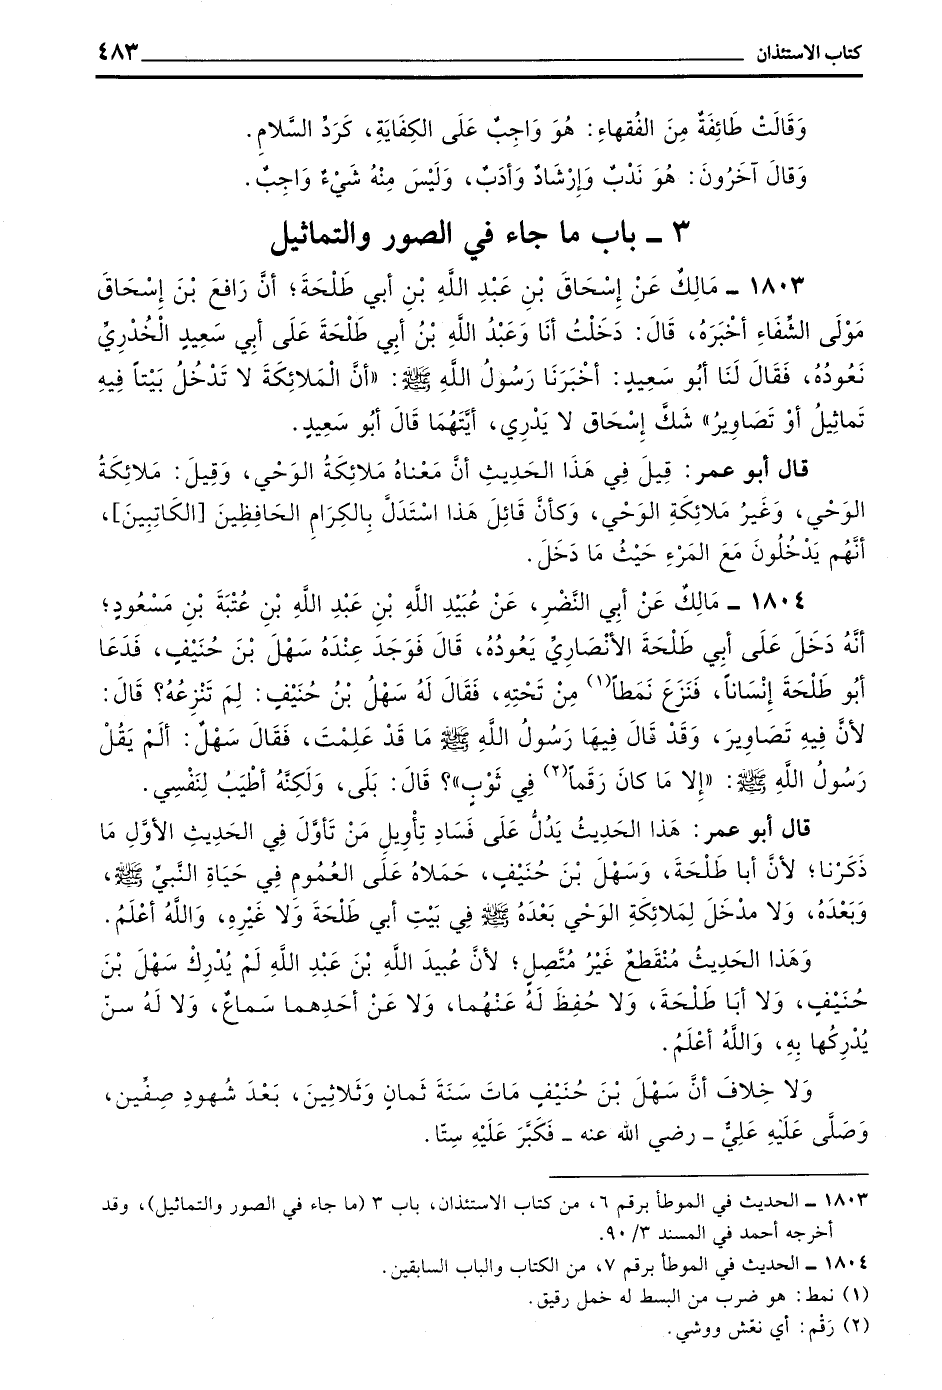 كتاب الاستئذان ٤٨٣
وَقَالَتْ طَائِفَةٌ مِنَ الفُقهاءِ: هُوَ وَاجِبٌ عَلَى الكِفَايَةِ، كَرَدِّ السَّلامِ.
وَقالَ آخَرُونَ: هُوَ نَدْبٌ وَإِرْشَادٌ وَأدَبٌ، وَلَيْسَ مِنْهُ شَيْءٌ وَاجِبٌ.
٣ ـ باب ما جاء في الصور والتماثيل
١٨٠٣ ـ مَالِكٌ عَنْ إِسْحَاقَ بْنِ عَبْدِ اللَّهِ بْنِ أبي طَلْحَةَ؛ أنَّ رَافِعَ بْنَ إِسْحَاقَ
مَوْلَى الشِّفَاءِ أخْبَرَهُ، قَالَ: دَخَلْتُ أنَا وَعَبْدُ اللَّهِ بْنُ أبِي طَلْحَةَ عَلَى أبِي سَعِيدٍ الْخُدْرِيِّ
نَعُودُهُ، فَقَالَ لَنَا أبُو سَعِيدٍ: أخْبَرَنَا رَسُولُ اللَّهِ ﷺ: «أنَّ الْمَلائِكَةَ لا تَدْخُلُ بَيْتاً فِيهِ
تَماثِيلُ أوْ تَصَاوِيرُ» شَكَّ إِسْحَاق لا يَدْرِي، أيَّتَهُمَا قَالَ أبُو سَعِيدٍ.
قال أبو عمر: قِيلَ فِي هَذَا الحَدِيثِ أنَّ مَعْناهُ مَلائِكَةُ الوَحْيِ، وَقِيلَ: مَلائِكَةُ
الوَحْيِ، وَغَيرُ مَلائِكَةِ الوَحْيِ، وَكأنَّ قائِلَ هَذا اسْتَدَلَّ بِالكِرَامِ الحَافِظِينَ [الكَاتِبِينَ]،
أنَّهُم يَدْخُلُونَ مَعَ المَرْءِ حَيْثُ مَا دَخَلَ.
١٨٠٤ ـ مَالِكٌ عَنْ أبِي النَّضْرِ، عَنْ عُبَيْدِ اللَّهِ بْنِ عَبْدِ اللَّهِ بْنِ عُتْبَةَ بْنِ مَسْعُودٍ؛
أنَّهُ دَخَلَ عَلَى أبِي طَلْحَةَ الأنْصَارِيِّ يَعُودُهُ، قَالَ فَوَجَدَ عِنْدَهُ سَهْلَ بْنَ حُنَيْفٍ، فَدَعَا
أبُو طَلْحَةَ إِنْسَاناً، فَنَزَعَ نَمَطاً(١) مِنْ تَحْتِهِ، فَقَالَ لَهُ سَهْلُ بْنُ حُنَيْفٍ: لِمَ تَنْزِعُهُ؟ قَالَ:
لأنَّ فِيهِ تَصَاوِيرَ، وَقَدْ قَالَ فِيهَا رَسُولُ اللَّهِ ﷺ مَا قَدْ عَلِمْتَ، فَقَالَ سَهْلٌ: ألَمْ يَقُلْ
رَسُولُ اللَّهِ ﷺ: «إِلا مَا كانَ رَقَماً(٢) فِي ثَوْبٍ»؟ قَالَ: بَلَى، وَلَكِنَّهُ أطْيَبُ لِنَفْسِي.
قال أبو عمر: هَذا الحَدِيثُ يَدُلُّ عَلَى فَسَادِ تأْوِيلِ مَنْ تَأوَّلَ فِي الحَدِيثِ الأوَّلِ مَا
ذَكَرْنا؛ لأنَّ أبا طَلْحَةَ، وَسَهْلَ بْنَ حُنَيْفٍ، حَمَلاهُ عَلَى العُمُومِ فِي حَيَاةِ النَّبيِّ ﷺ،
وَبَعْدَهُ، وَلا مدْخَلَ لِمَلائِكَةِ الوَحْيِ بَعْدَهُ ﷺ فِي بَيْتِ أبي طَلْحَةَ وَلا غَيْرِهِ، وَاللَّهُ أعْلَمُ.
وَهَذا الحَدِيثُ مُنْقَطعٌ غَيْرُ مُتَّصِلٍ؛ لأنَّ عُبيدَ اللَّهِ بْنَ عَبْدِ اللَّهِ لَمْ يُدْرِكْ سَهْلَ بْنَ
حُنَيْفٍ، وَلا أبَا طَلْحَةَ، وَلا حُفِظَ لَهُ عَنْهُما، وَلا عَنْ أحَدِهما سَماعٌ، وَلا لَهُ سنّ
يُدْرِكُها بِهِ، وَاللَّهُ أعْلَمُ.
وَلا خِلافَ أنَّ سَهْلَ بْنَ حُنَيْفٍ ماتَ سَنَةَ ثَمانٍ وَثَلاثِينَ، بَعْدَ شُهودِ صِفِّين،
وَصَلَّى عَلَيْهِ عَلِيٌّ ـ رضي الله عنه ـ فَكَبَّرَ عَلَيْهِ سِتّا.
١٨٠٣ ـ الحديث في الموطأ برقم ٦، من كتاب الاستئذان، باب ٣ (ما جاء في الصور والتماثيل)، وقد
أخرجه أحمد في المسند ٣/ ٩٠.
١٨٠٤ ـ الحديث في الموطأ برقم ٧، من الكتاب والباب السابقين.
(١) نمط: هو ضرب من البسط له خمل رقيق.
(٢) رَقْم: أي نقّش ووشي.